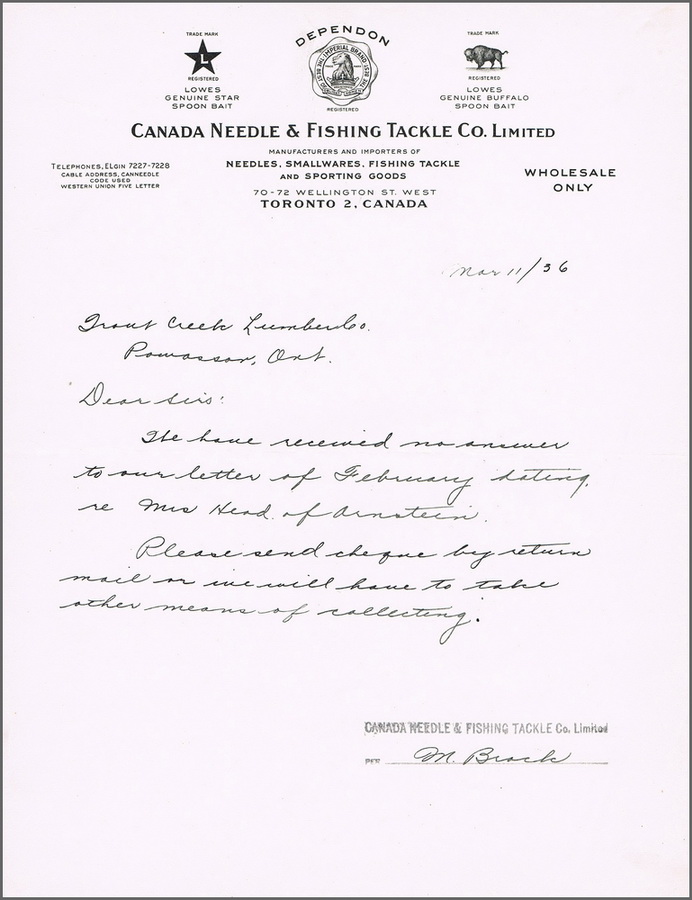 TRADE MARK
L
REGISTERED
LOWES
GENUINE STAR
SPOON BAIT
DEPENDON
THE IMPERIAL BRAND
REGISTERED
TRADE MARK
REGISTERED
LOWES
GENUINE BUFFALO
SPOON BAIT
CANADA NEEDLE & FISHING TACKLE CO. LIMITED
MANUFACTURERS AND IMPORTERS OF
NEEDLES, SMALLWARES, FISHING TACKLE
AND SPORTING GOODS
70-72 WELLINGTON ST. WEST
TORONTO 2, CANADA
TELEPHONES, ELGIN 7227-7228
CABLE ADDRESS, CANNEEDLE
CODE USED
WESTERN UNION FIVE LETTER
WHOLESALE
ONLY
Mar 11/36
Trout Creek Lumber Co.
Powassan, Ont.
Dear Sirs:
We have received no answer
to our letter of February dating,
re Mrs Head of Arnstein.
Please send cheque by return
mail or we will have to take
other means of collecting.
CANADA NEEDLE & FISHING TACKLE Co. Limited
PER M. Brock